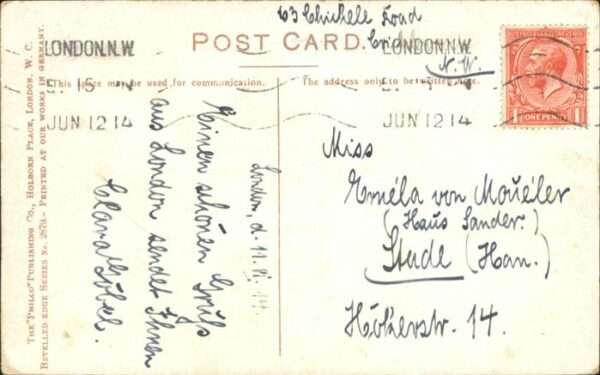 63 Chichele Road
N.W.
POST CARD.
LONDON.N.W.
5. 15
JUN 12 14
LONDON.N.W.
JUN 12 14
ONE PENNY
1
This space may be used for communication.
The address only to be written here.
THE "PHILCO" PUBLISHING CO., HOLBORN PLACE, LONDON, W. C.
BEVELLED EDGE SERIES No. - PRINTED AT OUR WORKS IN GERMANY.
London, d. 12. VI. 14
Einen schönen Gruß
aus London sendet Ihnen
Clara Göbel.
Miss
Eméla von Mouéler
(Haus Sander.)
Stade (Han.)
Hökerstr. 14.